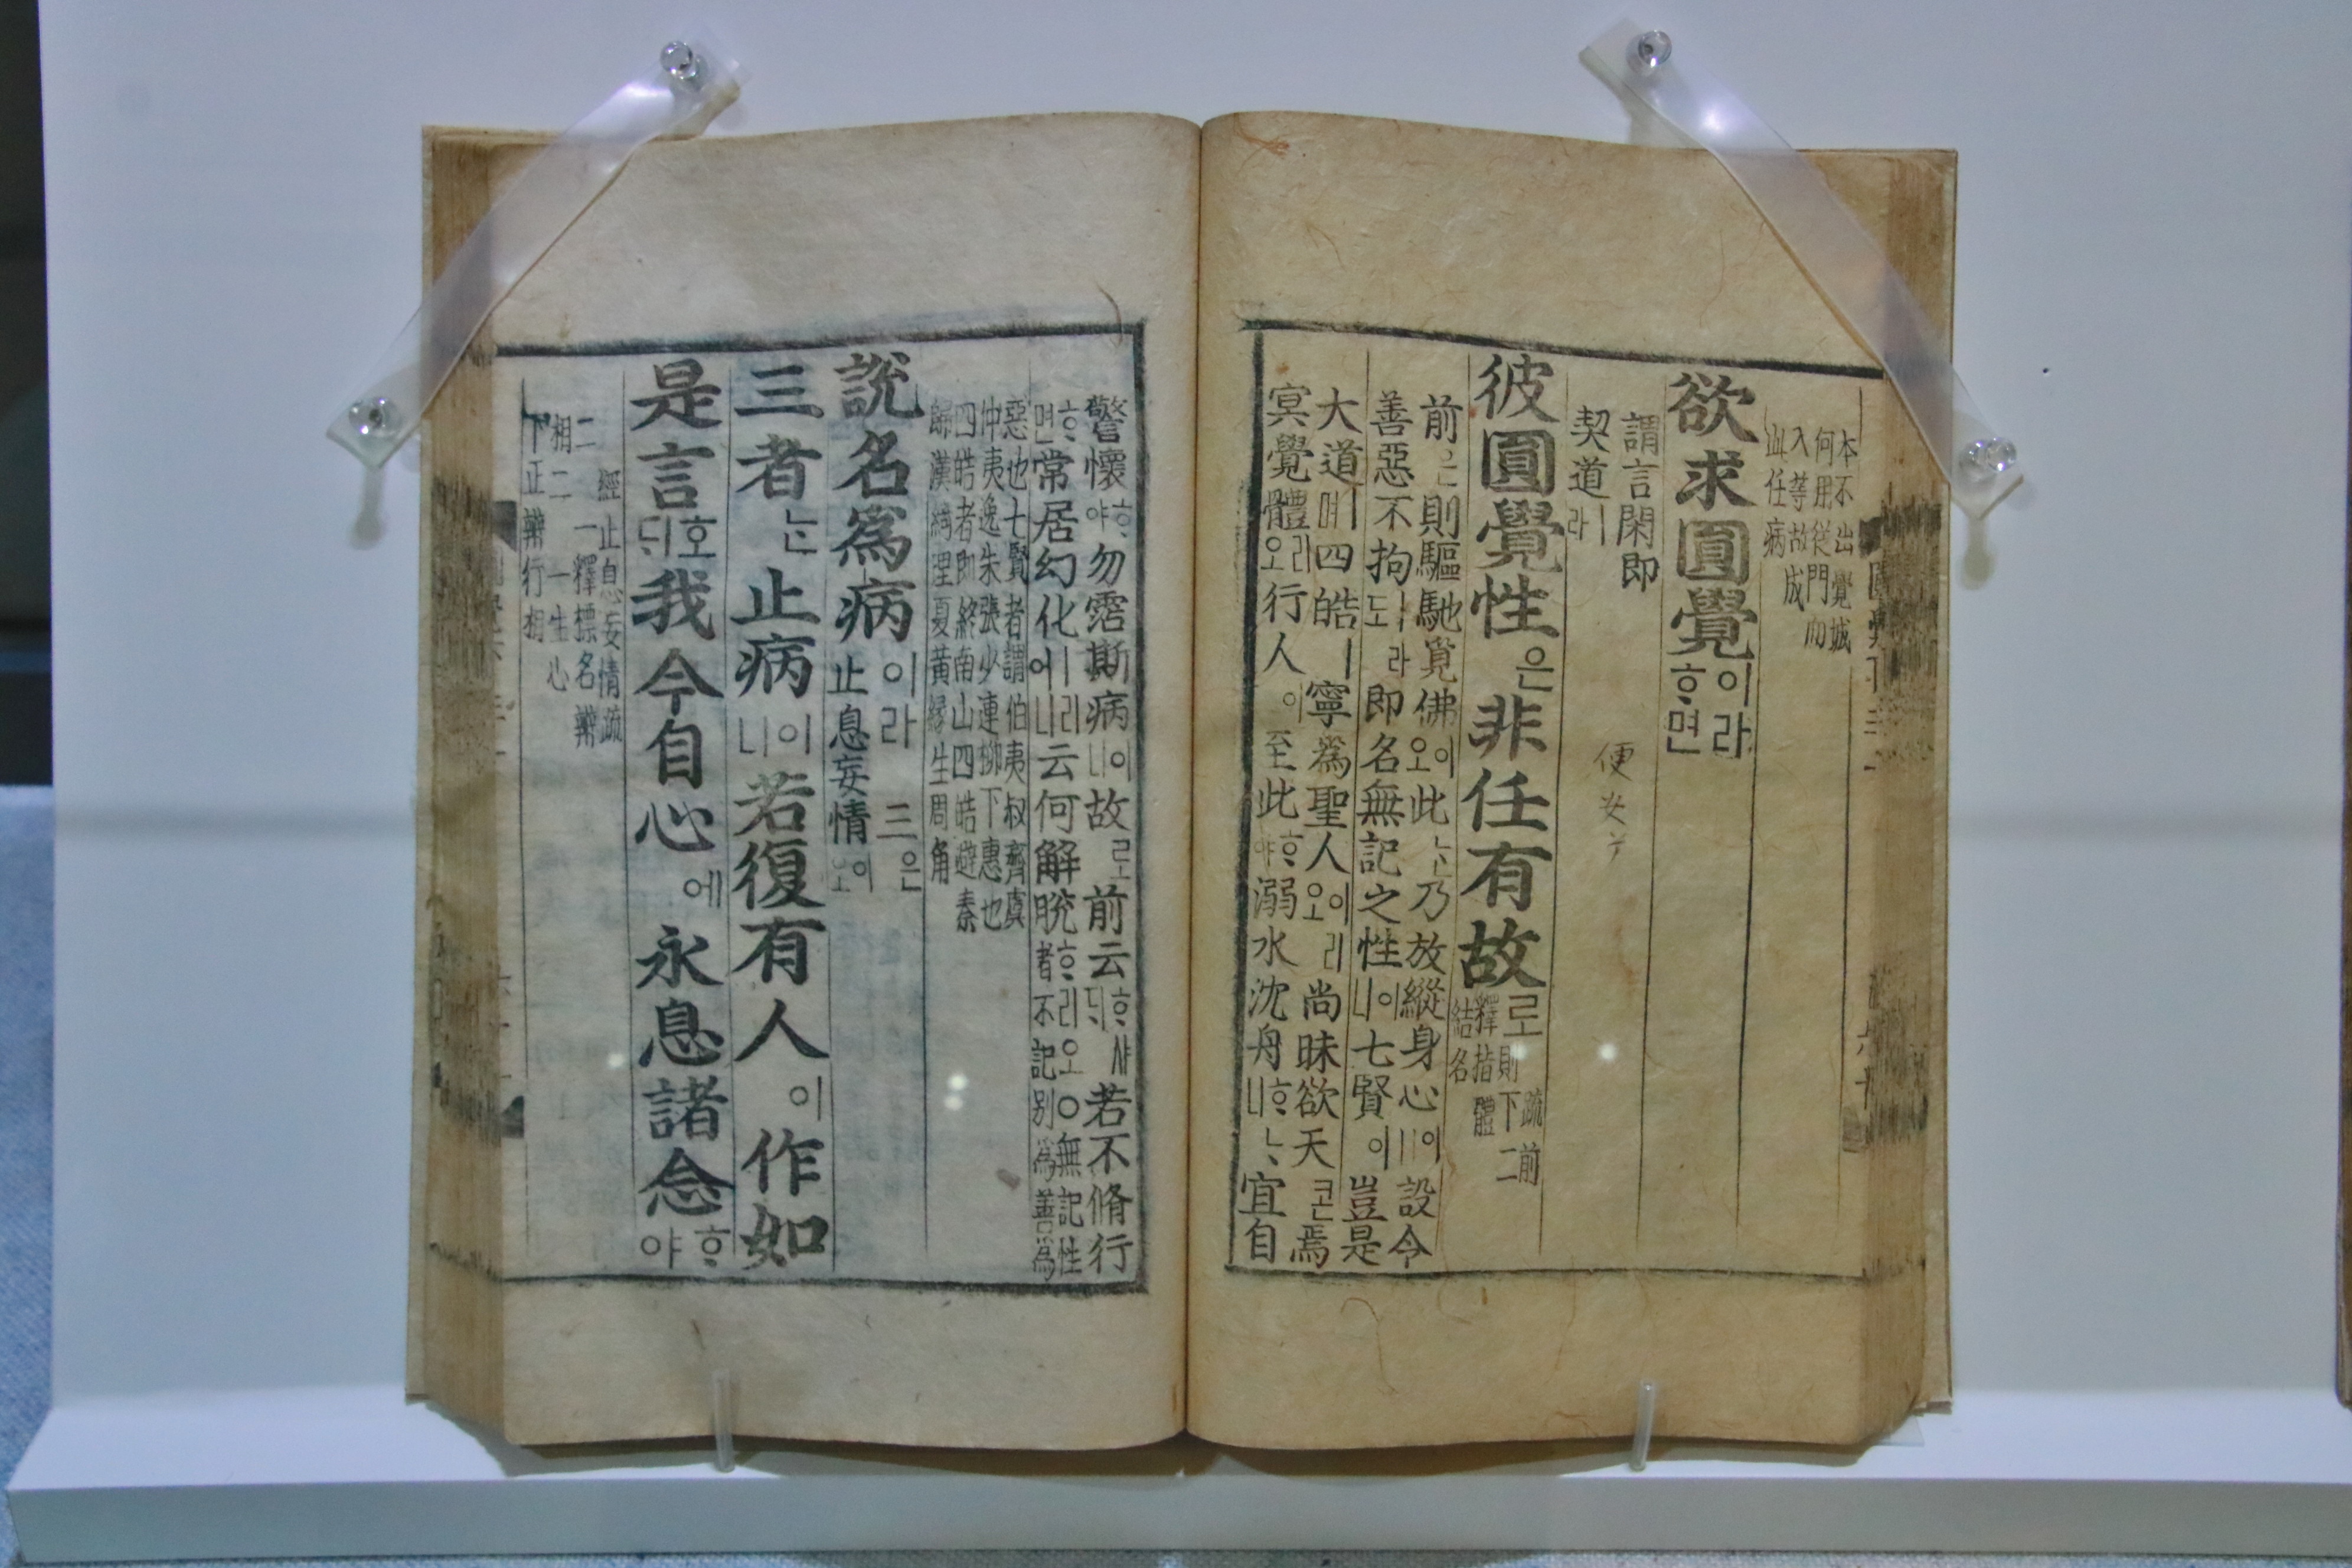 本不出覺城
何用從門而
入等故成
此任病
欲求圓覺이라ᄒᆞ면
謂言閑即
契道ㅣ라
便安
彼圓覺性은非任有故로
疏前
則下二
釋指體
結名
前은則驅馳覓佛이오此ᄂᆞᆫ乃放縱身心이니設令
善惡不拘ㅣ라도即名無記之性이니七賢이豈是
大道ㅣ며四皓ㅣ寧爲聖人이리오尚昧欲天콘焉
冥覺體리오行人이至此ᄒᆞ야溺水沈舟ᄒᆞᄂᆞ니宜自
警懷ᄒᆞ야勿霑斯病이니故로前云ᄒᆞ샤ᄃᆡ若不脩行
ᄒᆞ면常居幻化ㅣ어니云何解脫ᄒᆞ리오○無記性者不記别爲善爲
惡也七賢者謂伯夷叔齊虞
仲夷逸朱張少連柳下惠也
四皓者即終南山四皓避秦
歸漢綺里夏黄緣生周角
說名爲病이라三은止息妄情이오
三者ᄂᆞᆫ止病이니若復有人이作如
是言호ᄃᆡ我今自心에永息諸念ᄒᆞ야
經止息妄情疏
二一釋標名辨
相二一生心
下正辨行相